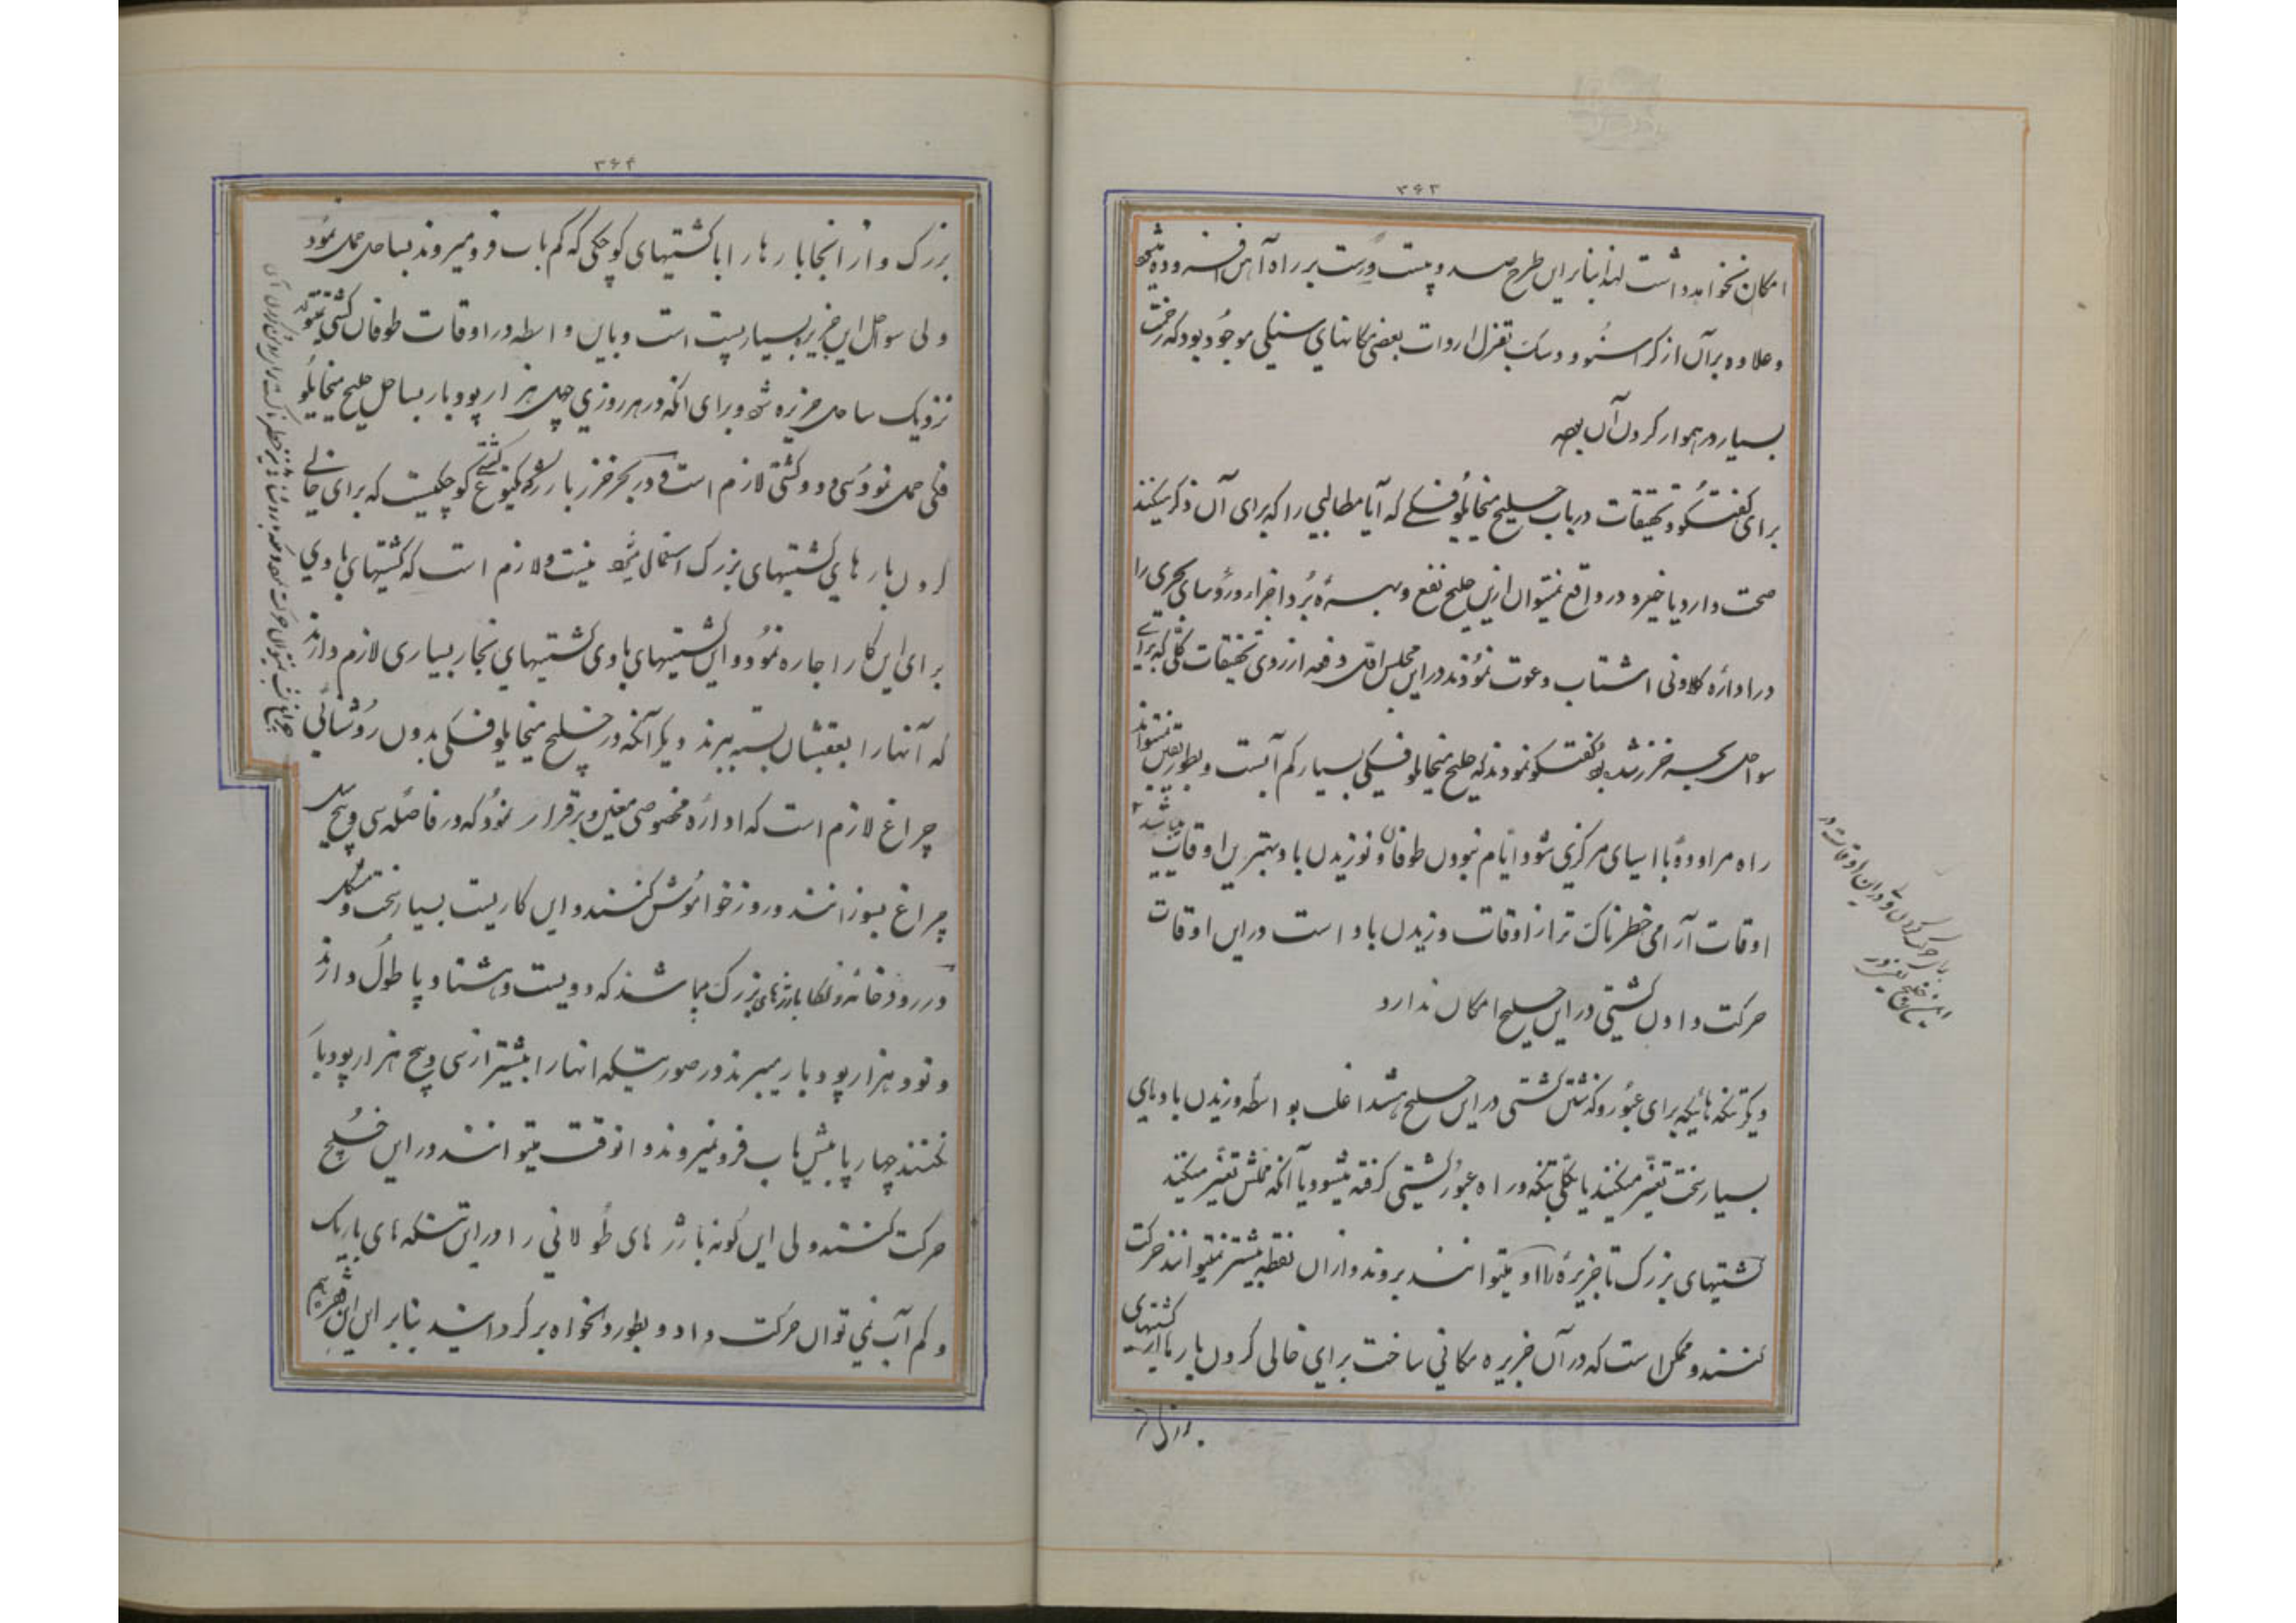 ۳۶۳
امکان نخواهد داشت لهذا بنابراین طرح صد و بیست ورست بر راه آهن افزوده میشود
و علاوه بر آن از کراسنوودسک بقزل اروات بعضی مکانهای سنگی موجود بود که زحمت
بسیار در هموار کردن آن بود
برای گفتگو و تحقیقات در باب خلیج میخایلوفسکی که آیا مطالبی را که برای آن ذکر میکنند
صحت دارد یا خیر و در واقع نمیتوان ازین خلیج نفع و بهرهٔ برد اجزا و رؤسای بحری را
در ادارهٔ کلاونی اشتاب دعوت نمودند در این مجلس اول دفعه از روی تحقیقات کلی که برای
سواحل بحر خزر شده بود گفتگو نمودند که خلیج میخایلوفسکی بسیار کم آبست و بطور یقین نمیتواند
راه مراودهٔ با اسیای مرکزی شود ایام نبودن طوفان و نوزیدن باد و بهترین اوقات
اوقات آرامی خطرناک تر از اوقات وزیدن باد است در این اوقات
حرکت دادن کشتی در این خلیج امکان ندارد
دیگر تنگه هائیکه برای عبور و گذشتن کشتی در این خلیج باشد اغلب بواسطه وزیدن بادهای
بسیار سخت تغییر میکنند یا بکلی تنگه و راه عبور کشتی گرفته میشود یا آنکه محلش تغییر میکند
کشتیهای بزرگ تا جزیرهٔ رااو میتوانند بروند و از آن نقطه بیشتر نمیتوانند حرکت
کنند و ممکن است که در آن جزیره مکانی ساخت برای خالی کردن بارها از کشتیهای
بزرک
۳۶۴
بزرک و از انجا بارها را با کشتیهای کوچکی که کم باب فرو میروند بساحل حمل نمود
ولی سواحل این جزیره بسیار پست است و باین واسطه در اوقات طوفان کشتی نمیتواند
نزدیک ساحل جزیره شود و برای انکه در هر روزی چهل هزار پود بار بساحل خلیج میخایلو
فسکی حمل نمود سی و دو کشتی لازم است و در بحر خزر بارژ که یکنوع کشتی کوچکیست که برای خالی
کردن بارهای کشتیهای بزرک استعمال میشود نیست و لازم است که کشتیهای بادی
برای این کار اجاره نمود و این کشتیهای بادی کشتیهای بخار بسیاری لازم دارند
که آنها را بعقبشان بسته ببرند دیگر آنکه در خلیج میخایلوفسکی بدون روشنائی
چراغ لازم است که ادارهٔ مخصوصی معین و برقرار نمود که در فاصله سی و پنج میل
چراغ بسوزانند و روز خواموش کنند و این کاریست بسیار سخت و مشکل
در رودخانه ولکا بارژهای بزرک میباشند که دویست و هشتاد پا طول دارند
و نود هزار پود بار میبرند در صورتیکه انها را بیشتر از سی و پنج هزار پود بار
نکنند چهار پا بیش باب فرو نمیروند و انوقت میتوانند در این خلیج
حرکت کنند ولی این گونه بارژهای طولانی را در این تنگه های باریک
و کم آب نمی توان حرکت داد و بطور دلخواه برگردانید بنابر این